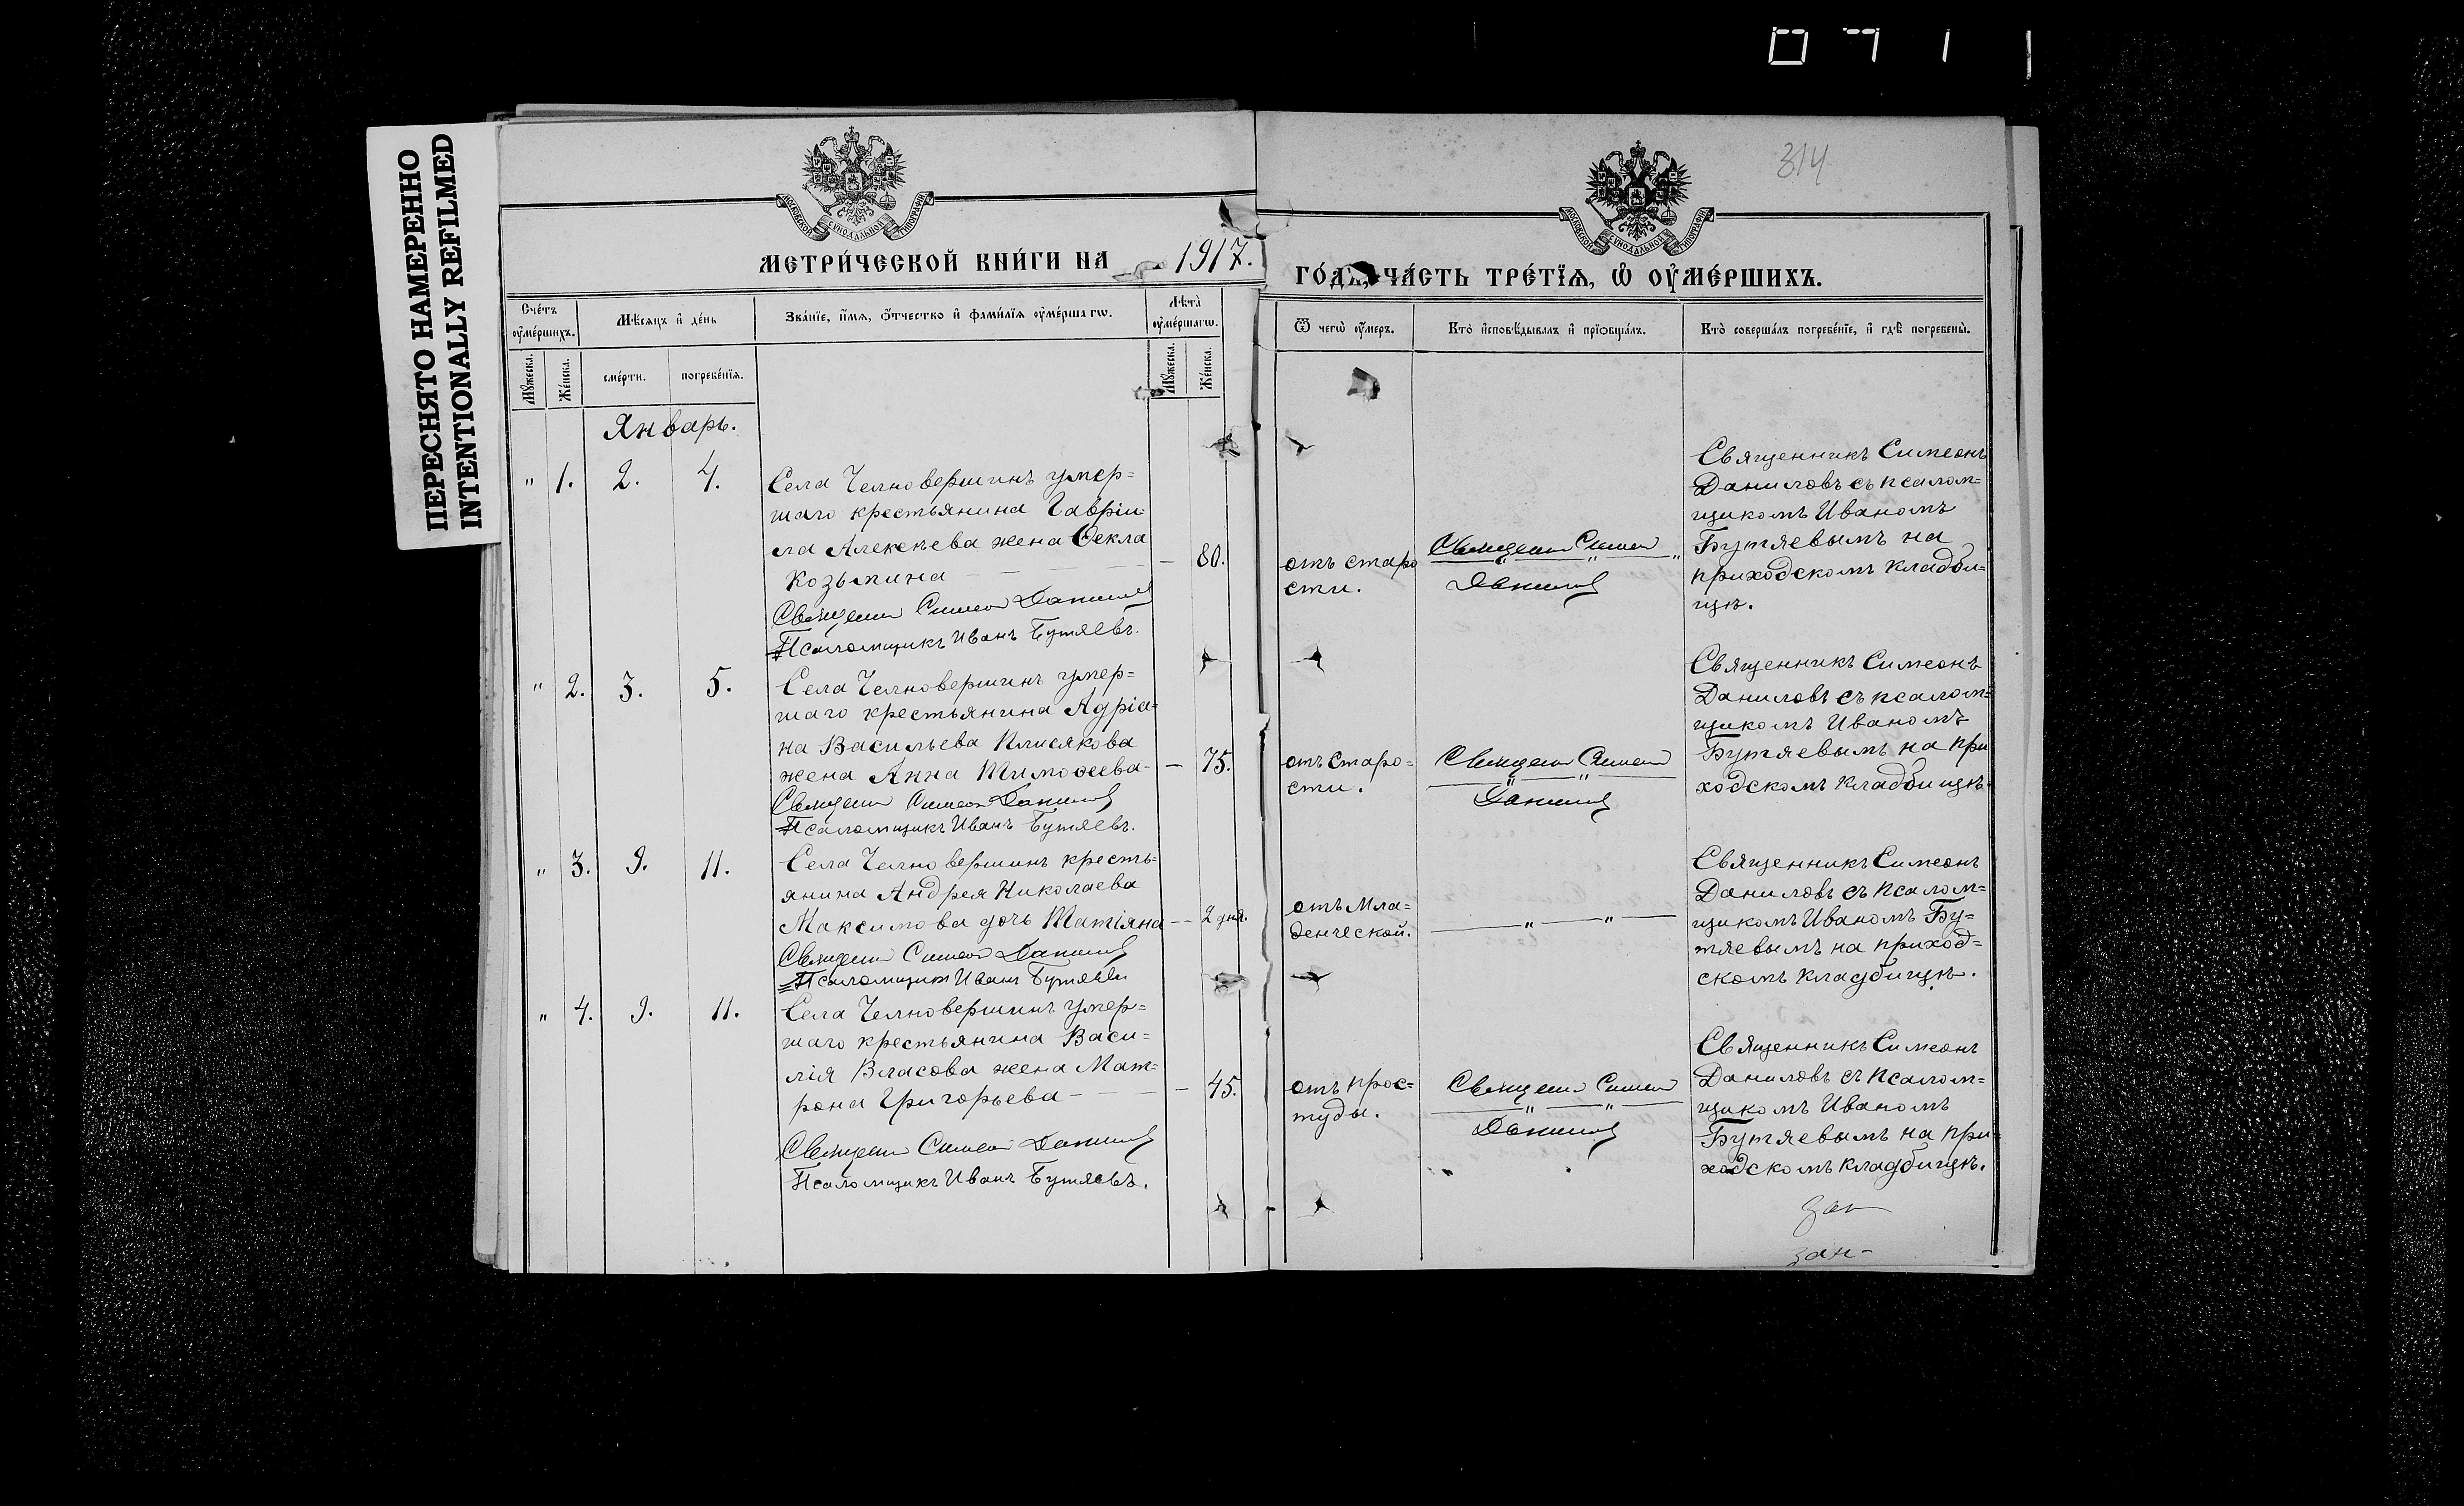 0711
ПЕРЕСНЯТО НАМЕРЕННО
INTENTIONALLY REFILMED
314
МОСКОВСКОЙ СѴНОДАЛЬНОЙ ТИПОГРАФІИ
МОСКОВСКОЙ СѴНОДАЛЬНОЙ ТИПОГРАФІИ
МЕТРИ́ЧЕСКОЙ КНИ́ГИ НА 1917.
ГО́ДЪ, ЧА́СТЬ ТРЕ́ТЇѦ, Ѡ҆ ОУ҆МЕ́РШИХЪ.
Сче́тъ оу҆ме́ршихъ.
Мѣ́сѧцъ и҆ де́нь
Зва́нїе, и҆́мѧ, ѻ҆́тчество и҆ фами́лїѧ оу҆ме́ршагѡ.
Лѣ̑та̀ оу҆ме́ршагѡ.
Ѿ чегѡ̀ оу҆́меръ.
Кто̀ и҆сповѣ́дывалъ и҆ прїѡбща́лъ.
Кто̀ соверша́лъ погребе́нїе, и҆ гдѣ̀ погребены̀.
Мꙋ́жеска.
Же́нска.
сме́рти.
погребе́нїѧ.
Мꙋ́жеска.
Же́нска.
Январь.
" 1. 2. 4.
Села Челновершинъ умер=
шаго крестьянина Гавріи=
ла Алексѣева жена Ѳекла
Козьмина — 80.
Священ Симеон Данилов
Псаломщикъ Иванъ Бутяевъ.
отъ старо
сти.
Священ Симеон
Данилов
Священникъ Симеонъ
Даниловъ съ псалом=
щикомъ Иваномъ
Бутяевымъ на
приходскомъ кладби=
щѣ.
" 2. 3. 5.
Села Челновершинъ умер=
шаго крестьянина Адріа=
на Васильева Плисякова
жена Анна Тимоѳеева — 75.
Священ Симеон Данилов
Псаломщикъ Иванъ Бутяевъ.
отъ старо=
сти.
Священ Симеон
Данилов
Священникъ Симеонъ
Даниловъ съ псалом=
щикомъ Иваномъ
Бутяевымъ на при
ходскомъ кладбищѣ.
" 3. 9. 11.
Села Челновершинъ кресть=
янина Андрея Николаева
Максимова дочь Татіяна — 2 дня.
Священ Симеон Данилов
Псаломщикъ Иванъ Бутяевъ
отъ мла=
денческой.
— " — " —
Священникъ Симеонъ
Даниловъ съ псалом=
щикомъ Иваномъ Бу=
тяевымъ на приход=
скомъ кладбищѣ.
" 4. 9. 11.
Села Челновершинъ умер=
шаго крестьянина Васи=
лія Власова жена Мат=
рона Григорьева — 45.
Священ Симеон Данилов
Псаломщикъ Иванъ Бутяевъ.
отъ прос=
туды.
Священ Симеон
Данилов
Священникъ Симеонъ
Даниловъ съ псалом=
щикомъ Иваномъ
Бутяевымъ на при=
ходскомъ кладбищѣ.
зап
зап-